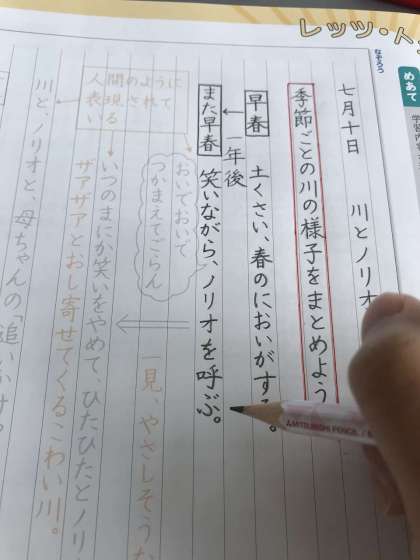 レッツ・ト
なぞろう
めあて
七月十日　川とノリオ
季節ごとの川の様子をまとめよう
早春　土くさい、春のにおいがする。
一年後
また早春　笑いながら、ノリオを呼ぶ。
おいでおいで
つかまえてごらん
一見、やさしそうな
人間のように
表現されて
いる
いつのまにか笑いをやめて、ひたひたとノリ
ザアザアとおし寄せてくるこわい川。
川と、ノリオと、母ちゃんの「追いかけ
MITSUBISHI PENCIL